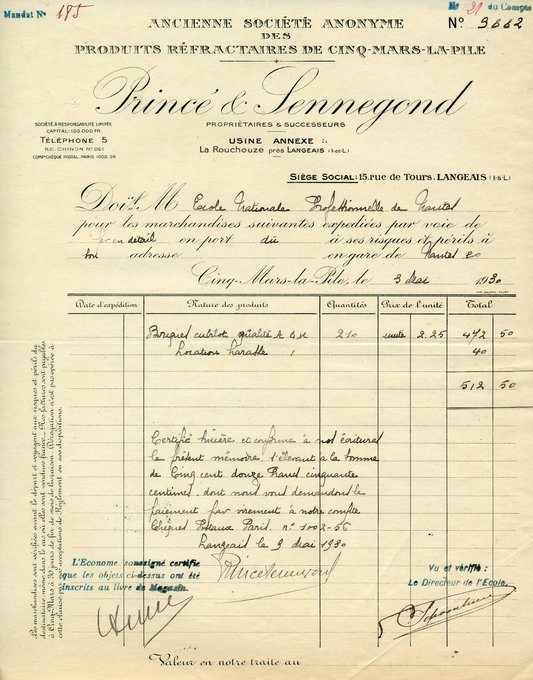 Mandat Nº 185
Nº 21 du Compte
ANCIENNE SOCIÉTÉ ANONYME
DES
PRODUITS RÉFRACTAIRES DE CINQ-MARS-LA-PILE
Nº 9882
Princé & Sennegond
PROPRIÉTAIRES & SUCCESSEURS
SOCIÉTÉ A RESPONSABILITÉ LIMITÉE
CAPITAL: 105.000 FR.
TÉLÉPHONE 5
R.C. CHINON Nº 921
COMPT. CHÈQUE POSTAL PARIS 1002.56
USINE ANNEXE :
La Rouchouze près LANGEAIS (I-et-L)
SIÈGE SOCIAL: 15, rue de Tours, LANGEAIS (I-&-L)
Doit M Ecole Nationale Professionnelle de Nantes
pour les marchandises suivantes expédiées par voie de
détail en port dû à ses risques et périls à
adresse en gare de Nantes
Cinq-Mars-la-Pile, le 3 Mai 1930
Date d'expédition Nature des produits Quantités Prix de l'unité Total
Briques cubilot qualité A 210 unité 2.25 472 50
Location harasse 40
512 50
Certifié sincère et conforme à nos écritures
le présent mémoire s'élevant à la somme
de Cinq cent douze francs cinquante
centimes, dont nous vous demandons le
paiement par virement à notre compte
Chèques Postaux Paris nº 1002-56
Langeais le 9 Mai 1930
L'Econome soussigné certifie
que les objets ci-dessus ont été
inscrits au livre de Magasin.
Vu et vérifié :
Le Directeur de l'Ecole,
Les marchandises sont vérifiées avant le départ et voyagent aux risques et périls du
destinataire, même dans le cas où elles sont vendues franco - Nos factures sont payables
à Cinq-Mars à 30 jours de fin de mois de livraison. Dérogation n'est pas opérée à
cette clause par nos acceptations de Règlement ou nos dispositions.
Valeur en notre traite au